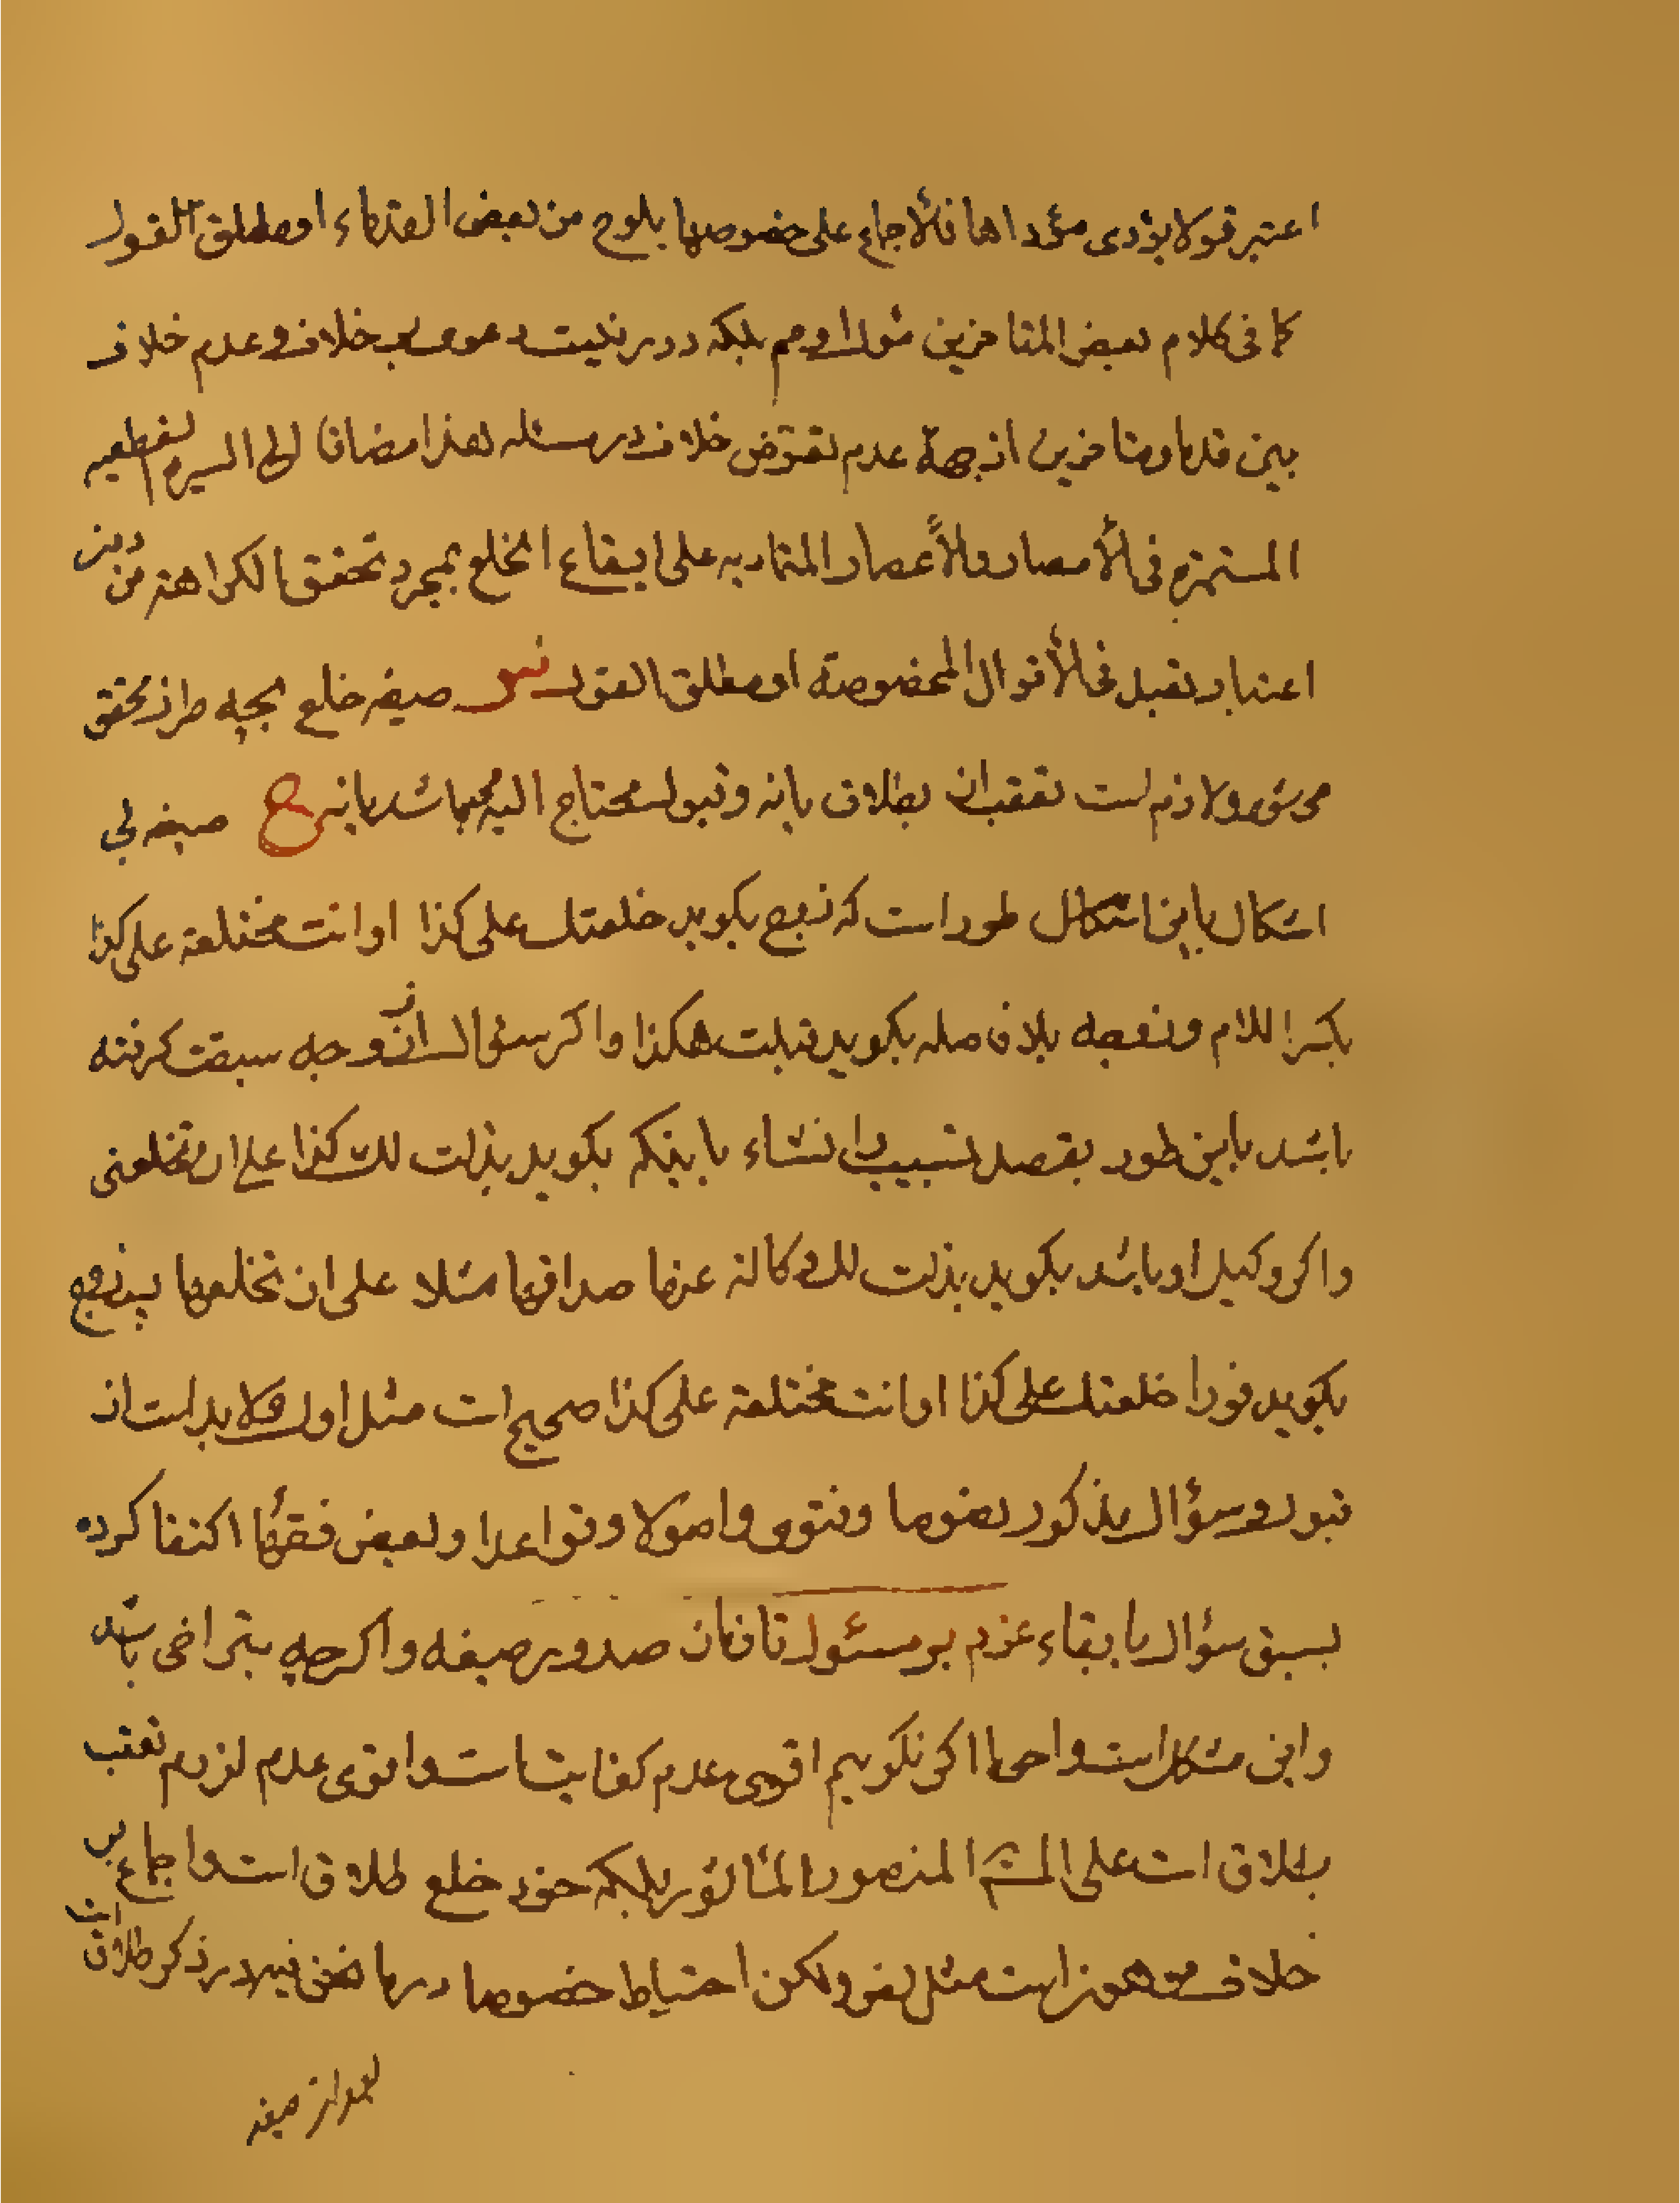 اعتبر قولا یؤدی مؤداها فالأجماع علی خصوصها یلوح من بعض القدماء او مطلق القول
کما فی کلام بعض المتأخرین بلکه دور نیست دعوی خلاف و عدم خلاف
بین قدما و متأخرین از جهة عدم تعرض خلاف در مسئله هذا مضافا الی السیرة القطعیه
المستمرة فی الأمصار والأعصار المتمادیه علی ایقاع الخلع بمجرد تحقق الکراهة من دون
اعتبار تقیید فی الأقوال المخصوصة او مطلق القول س صیغه خلع بچه طرز محقق
میشود و لازم است تعقب ان بطلاق یا نه و قبول محتاج الیه میباشد یا نه ج صیغه بی
اشکال باین طور است که زوج بکوید خلعتک علی کذا او انت مختلعة علی کذا
بکسر اللام و زوجه بلا فاصله بکوید قبلت هکذا و اکر سؤال از زوجه سبقت کرفته
باشد باین طور بقصد انشاء باینکه بکوید بذلت لک کذا علی ان تخلعنی
و اکر وکیل او باشد بکوید بذلت لک وکالة عنها صداقها مثلا علی ان تخلعها پس زوج
بکوید فورا خلعتک علی کذا او انت مختلعة علی کذا صحیح است مثل اول و لابد است از
قبول و سؤال مذکور نصوصا و فتوی و اصولا و قواعدا و بعض فقهأ اکتفا کرده
بسبق سؤال با بقاء عزم بر مسئول تا زمان صدور صیغه و اکرچه بتراخی باشد
و این مشکل است و اکر نکوییم اقوی عدم کفایت است و اقوی عدم لزوم تعقب
بطلاق است علی المنصور المأثور بلکه خود خلع طلاق است و اجماع بر
خلاف موهون است مثل نص ولکن احتیاط خصوصا در ما نحن فیه در ذکر طلاق است
بعد از صیغه